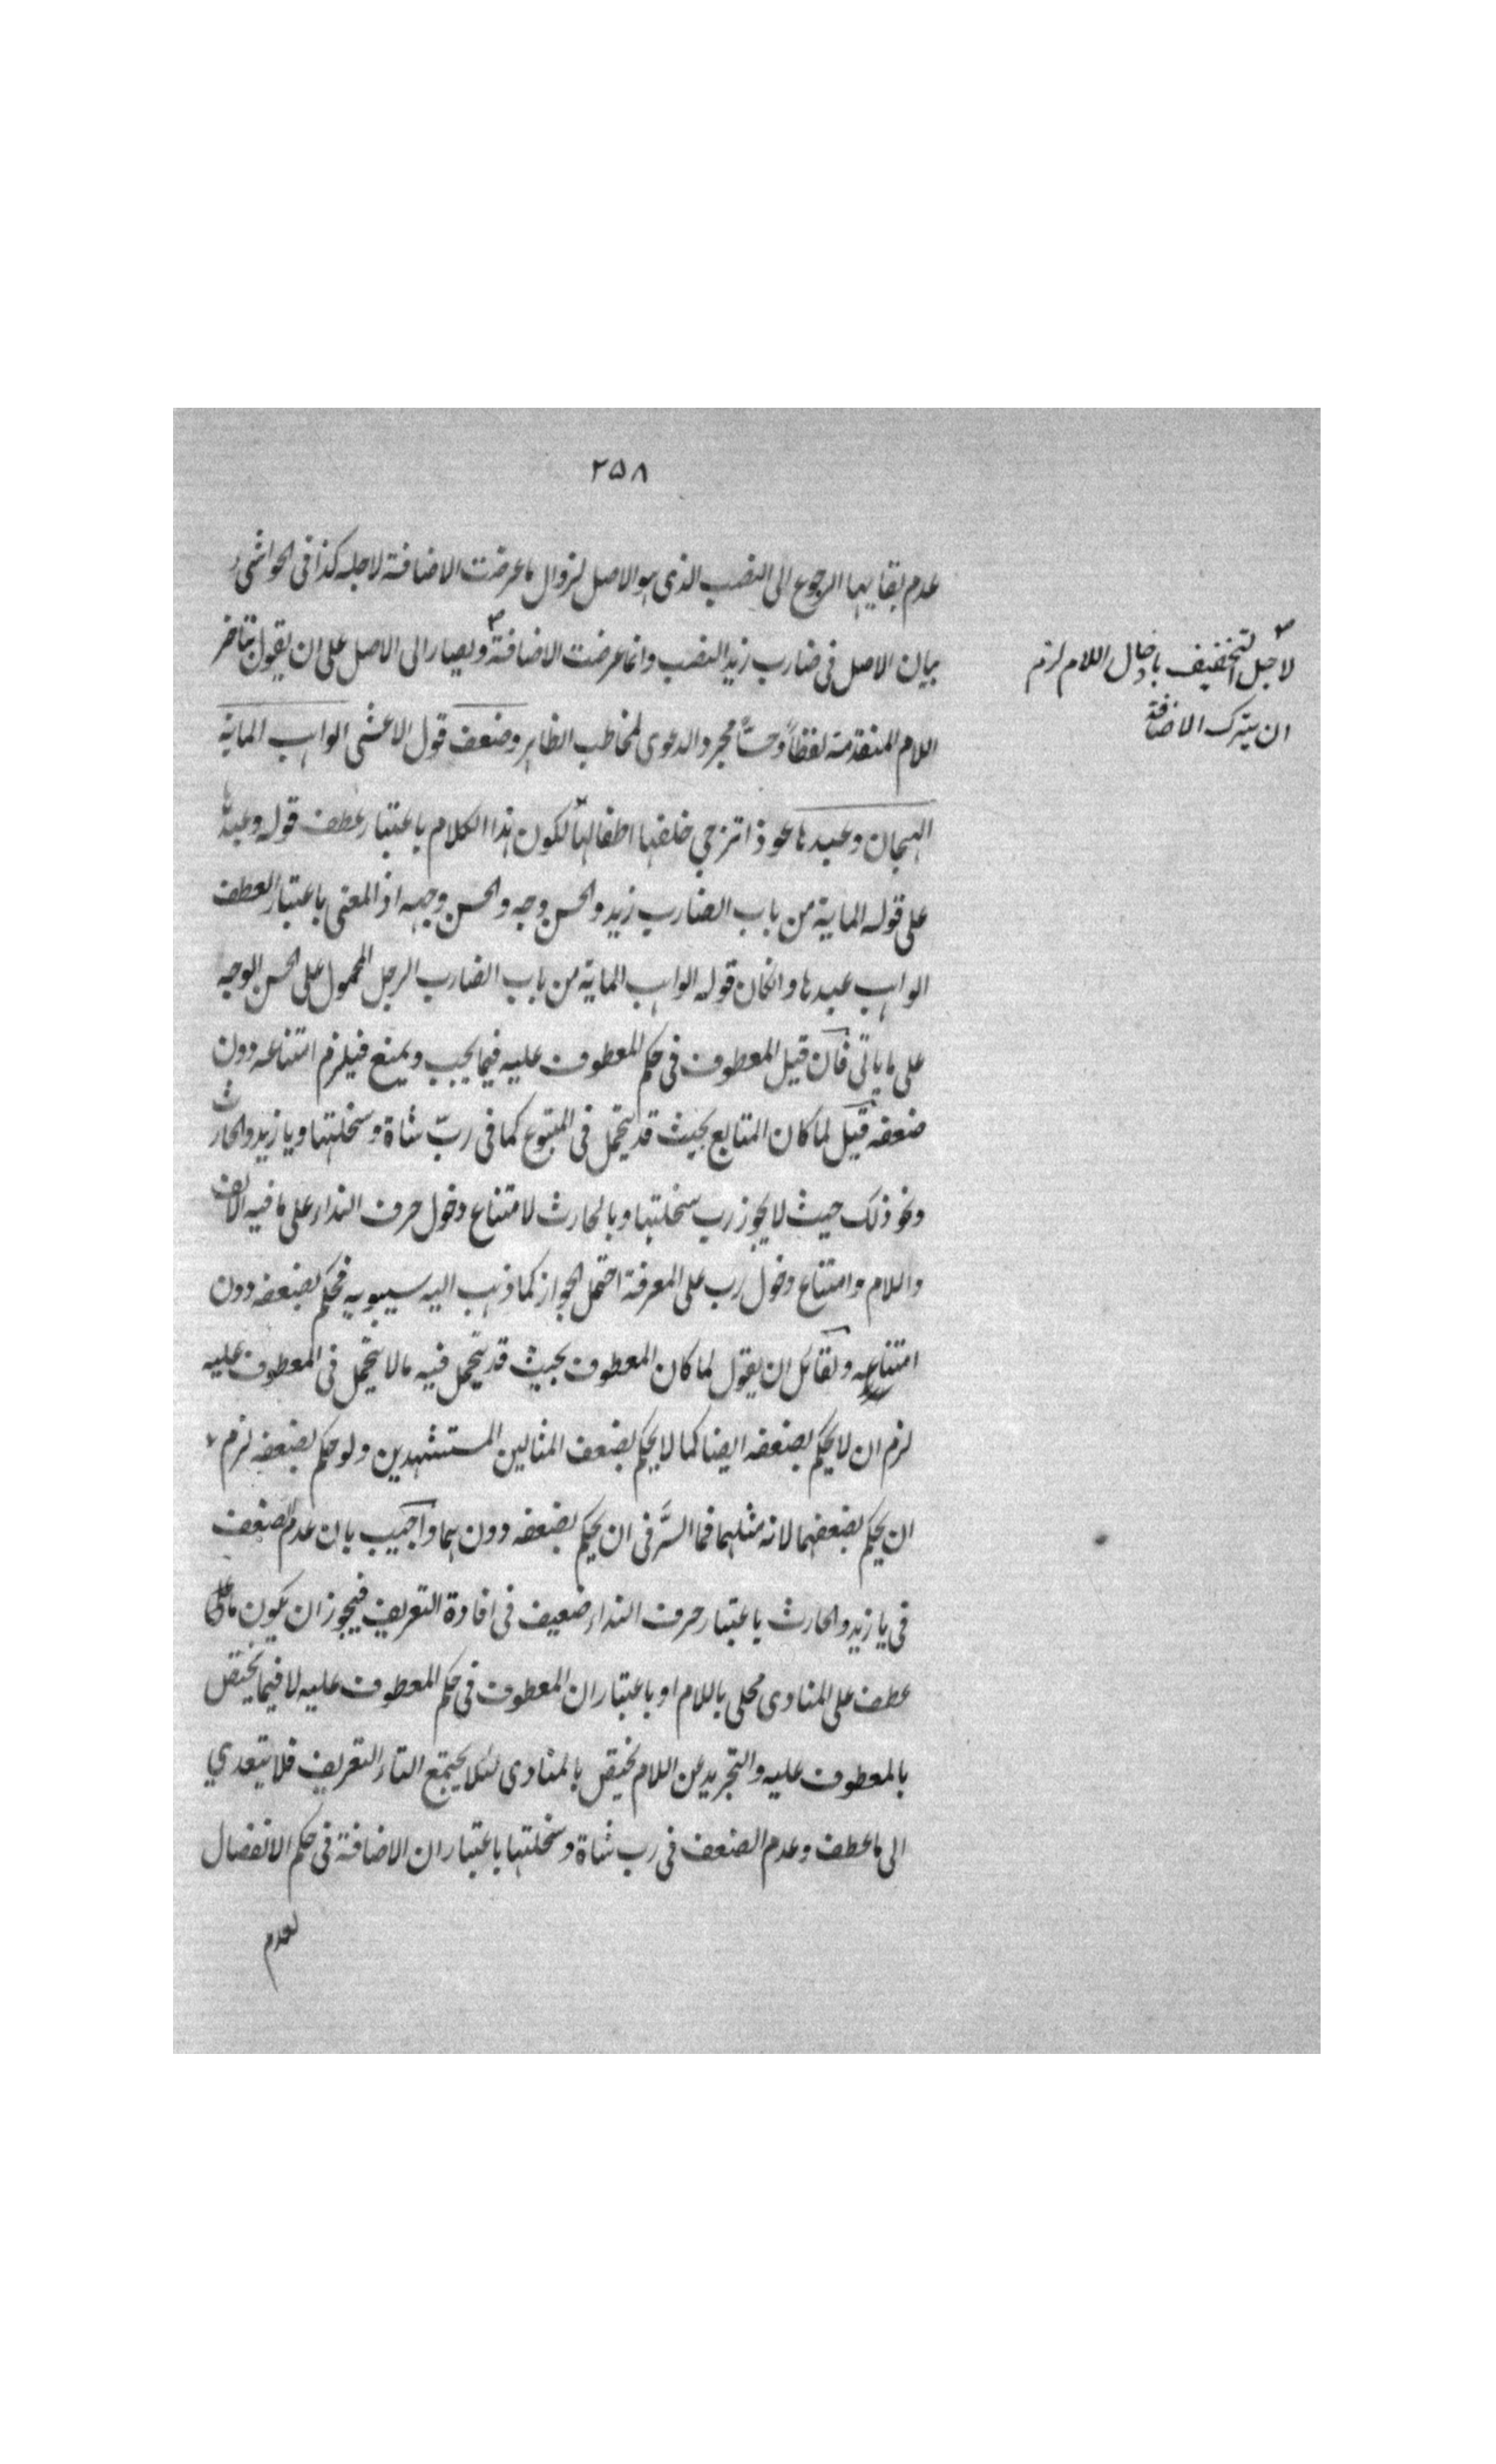 ٢٥٨
عدم بقايها الرجوع الى النصب الذى هو الاصل لزوال ما عرضت الاضافة لاجله كذا فى الحواشى
بيان الاصل فى ضارب زيد النصب وانما عرضت الاضافة ويصار الى الاصل على ان يقول بتاخر
لاجل التخفيف بادخال اللام لزم
ان يترك الاضافة
اللام المتقدمة لفظاً وحسّاً مجرد الدعوى لمخاطب الظاهر وضعف قول الاعشى الواهب الماية
الهجان وعبدها عوذا تزجي خلفها اطفالها لكون هذا الكلام باعتبار عطف قوله وعبدها
على قوله الماية من باب الضارب زيد والحسن وجه والحسن وجهه اذ المعنى باعتبار العطف
الواهب عبدها وانكان قوله الواهب الماية من باب الضارب الرجل المحمول على الحسن الوجه
على ما ياتى فان قيل المعطوف فى حكم المعطوف عليه فيما يجب ويمنع فيلزم امتناعه دون
ضعفه قيل لما كان المتابع بحيث قد يتحمل فى المتبوع كما فى ربّ شاة وسخلتها ويا زيد والحارث
ونحو ذلك حيث لا يجوز رب سخلتها وبالحارث لامتناع دخول حرف النداء على ما فيه الالف
واللام وامتناع دخول رب على المعرفة احتمل الجواز كما ذهب اليه سيبويه فحكم بضعفه دون
امتناعه ولقائل ان يقول لما كان المعطوف بحيث قد يتحمل فيه ما لا يتحمل فى المعطوف عليه
لزم ان لا يحكم بضعفه ايضا كما لا يحكم بضعف المثالين المستشهدين ولو حكم بضعفه لزم
ان يحكم بضعفهما لانه مثلهما فما السّر فى ان يحكم بضعفه دون هما واجيب بان عدم الضعف
فى يا زيد والحارث باعتبار حرف النداء ضعيف فى افادة التعريف فيجوز ان يكون ما على
عطف على المنادى محلى باللام او باعتبار ان المعطوف فى حكم المعطوف عليه لا فيما يختص
بالمعطوف عليه والتجريد عن اللام يختص بالمنادى لئلا يجتمع التاء التعريف فلا يتعدي
الى ما عطف وعدم الضعف فى رب شاة وسخلتها باعتبار ان الاضافة فى حكم الانفصال
لعدم